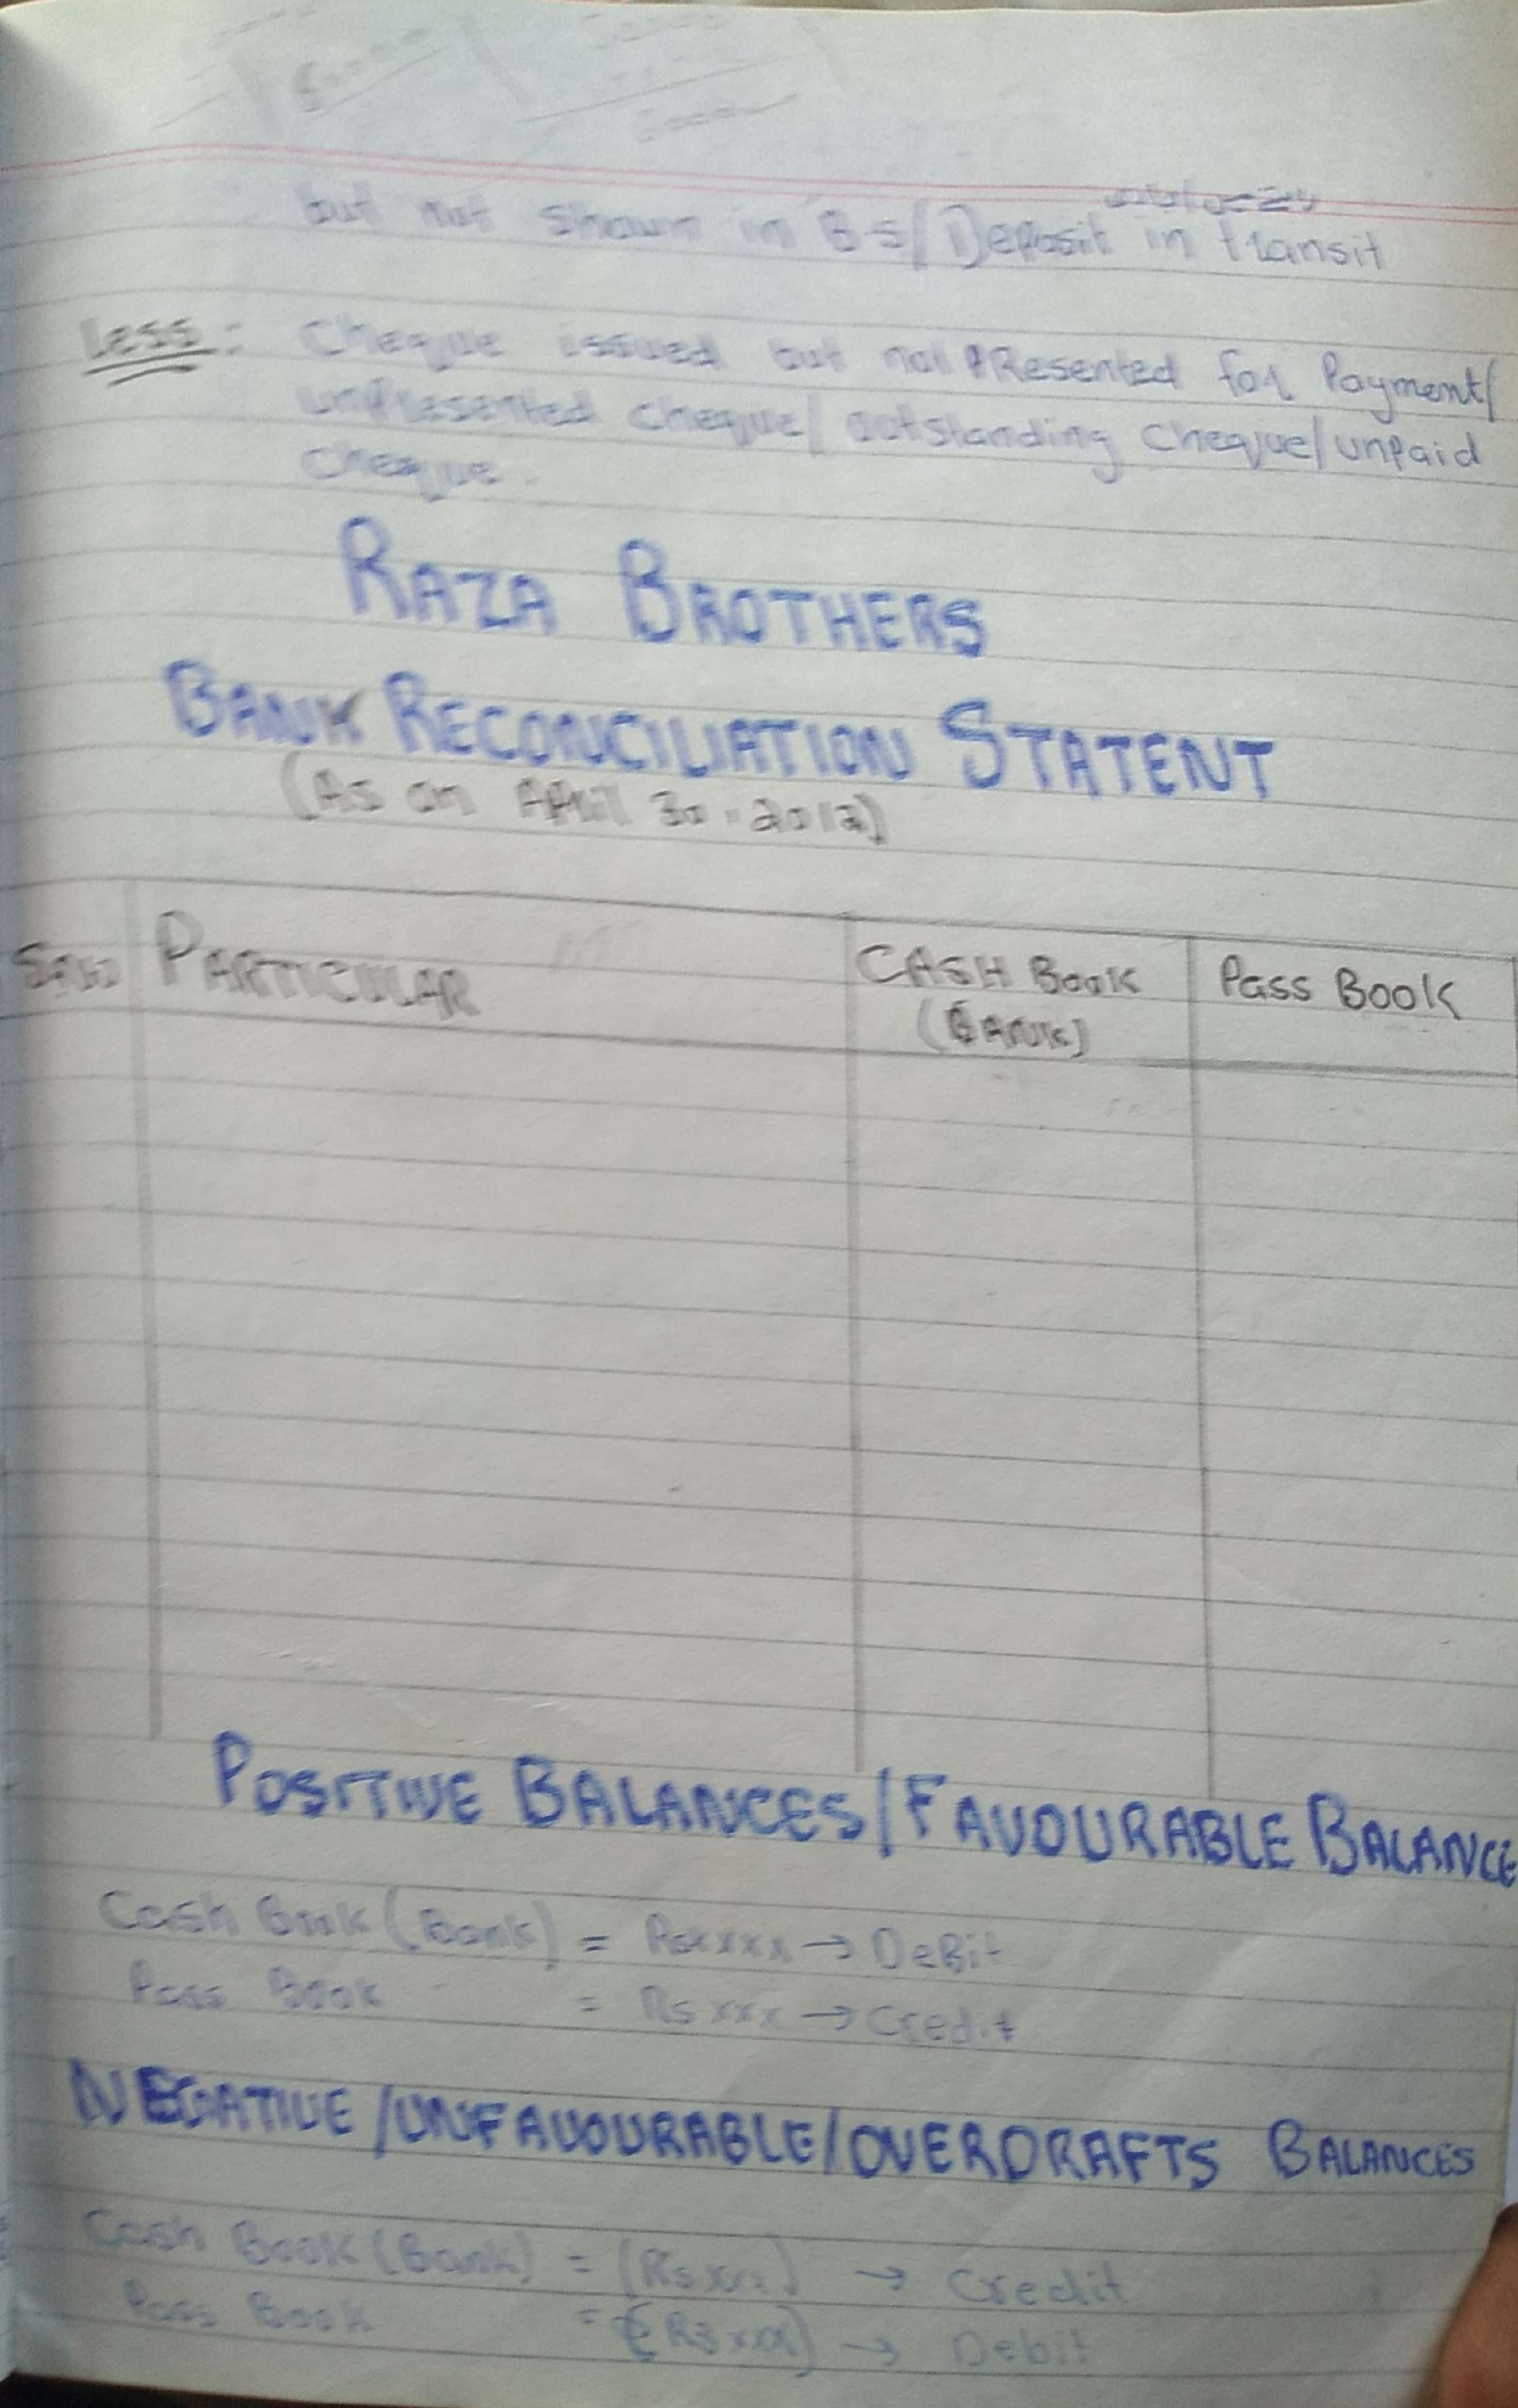 but not shown in BS/Deposit in transit
Less: Cheque issued but not PResented for Payment/
unpresented cheque/outstanding cheque/unpaid
cheque.
RAZA BROTHERS
BANK RECONCILIATION STATENT
(As on APRil 30.2012)
PARTICULAR CASH Book (BANK) Pass Book
POSITIVE BALANCES/FAVOURABLE BALANCE
Cash Book (Bank) = Rsxxxx → DeBit
Pass Book = Rs xxx → Credit
NEGATIVE/UNFAVOURABLE/OVERDRAFTS BALANCES
Cash Book (Bank) = (Rs xxx) → Credit
Pass Book = (Rs xxx) → Debit